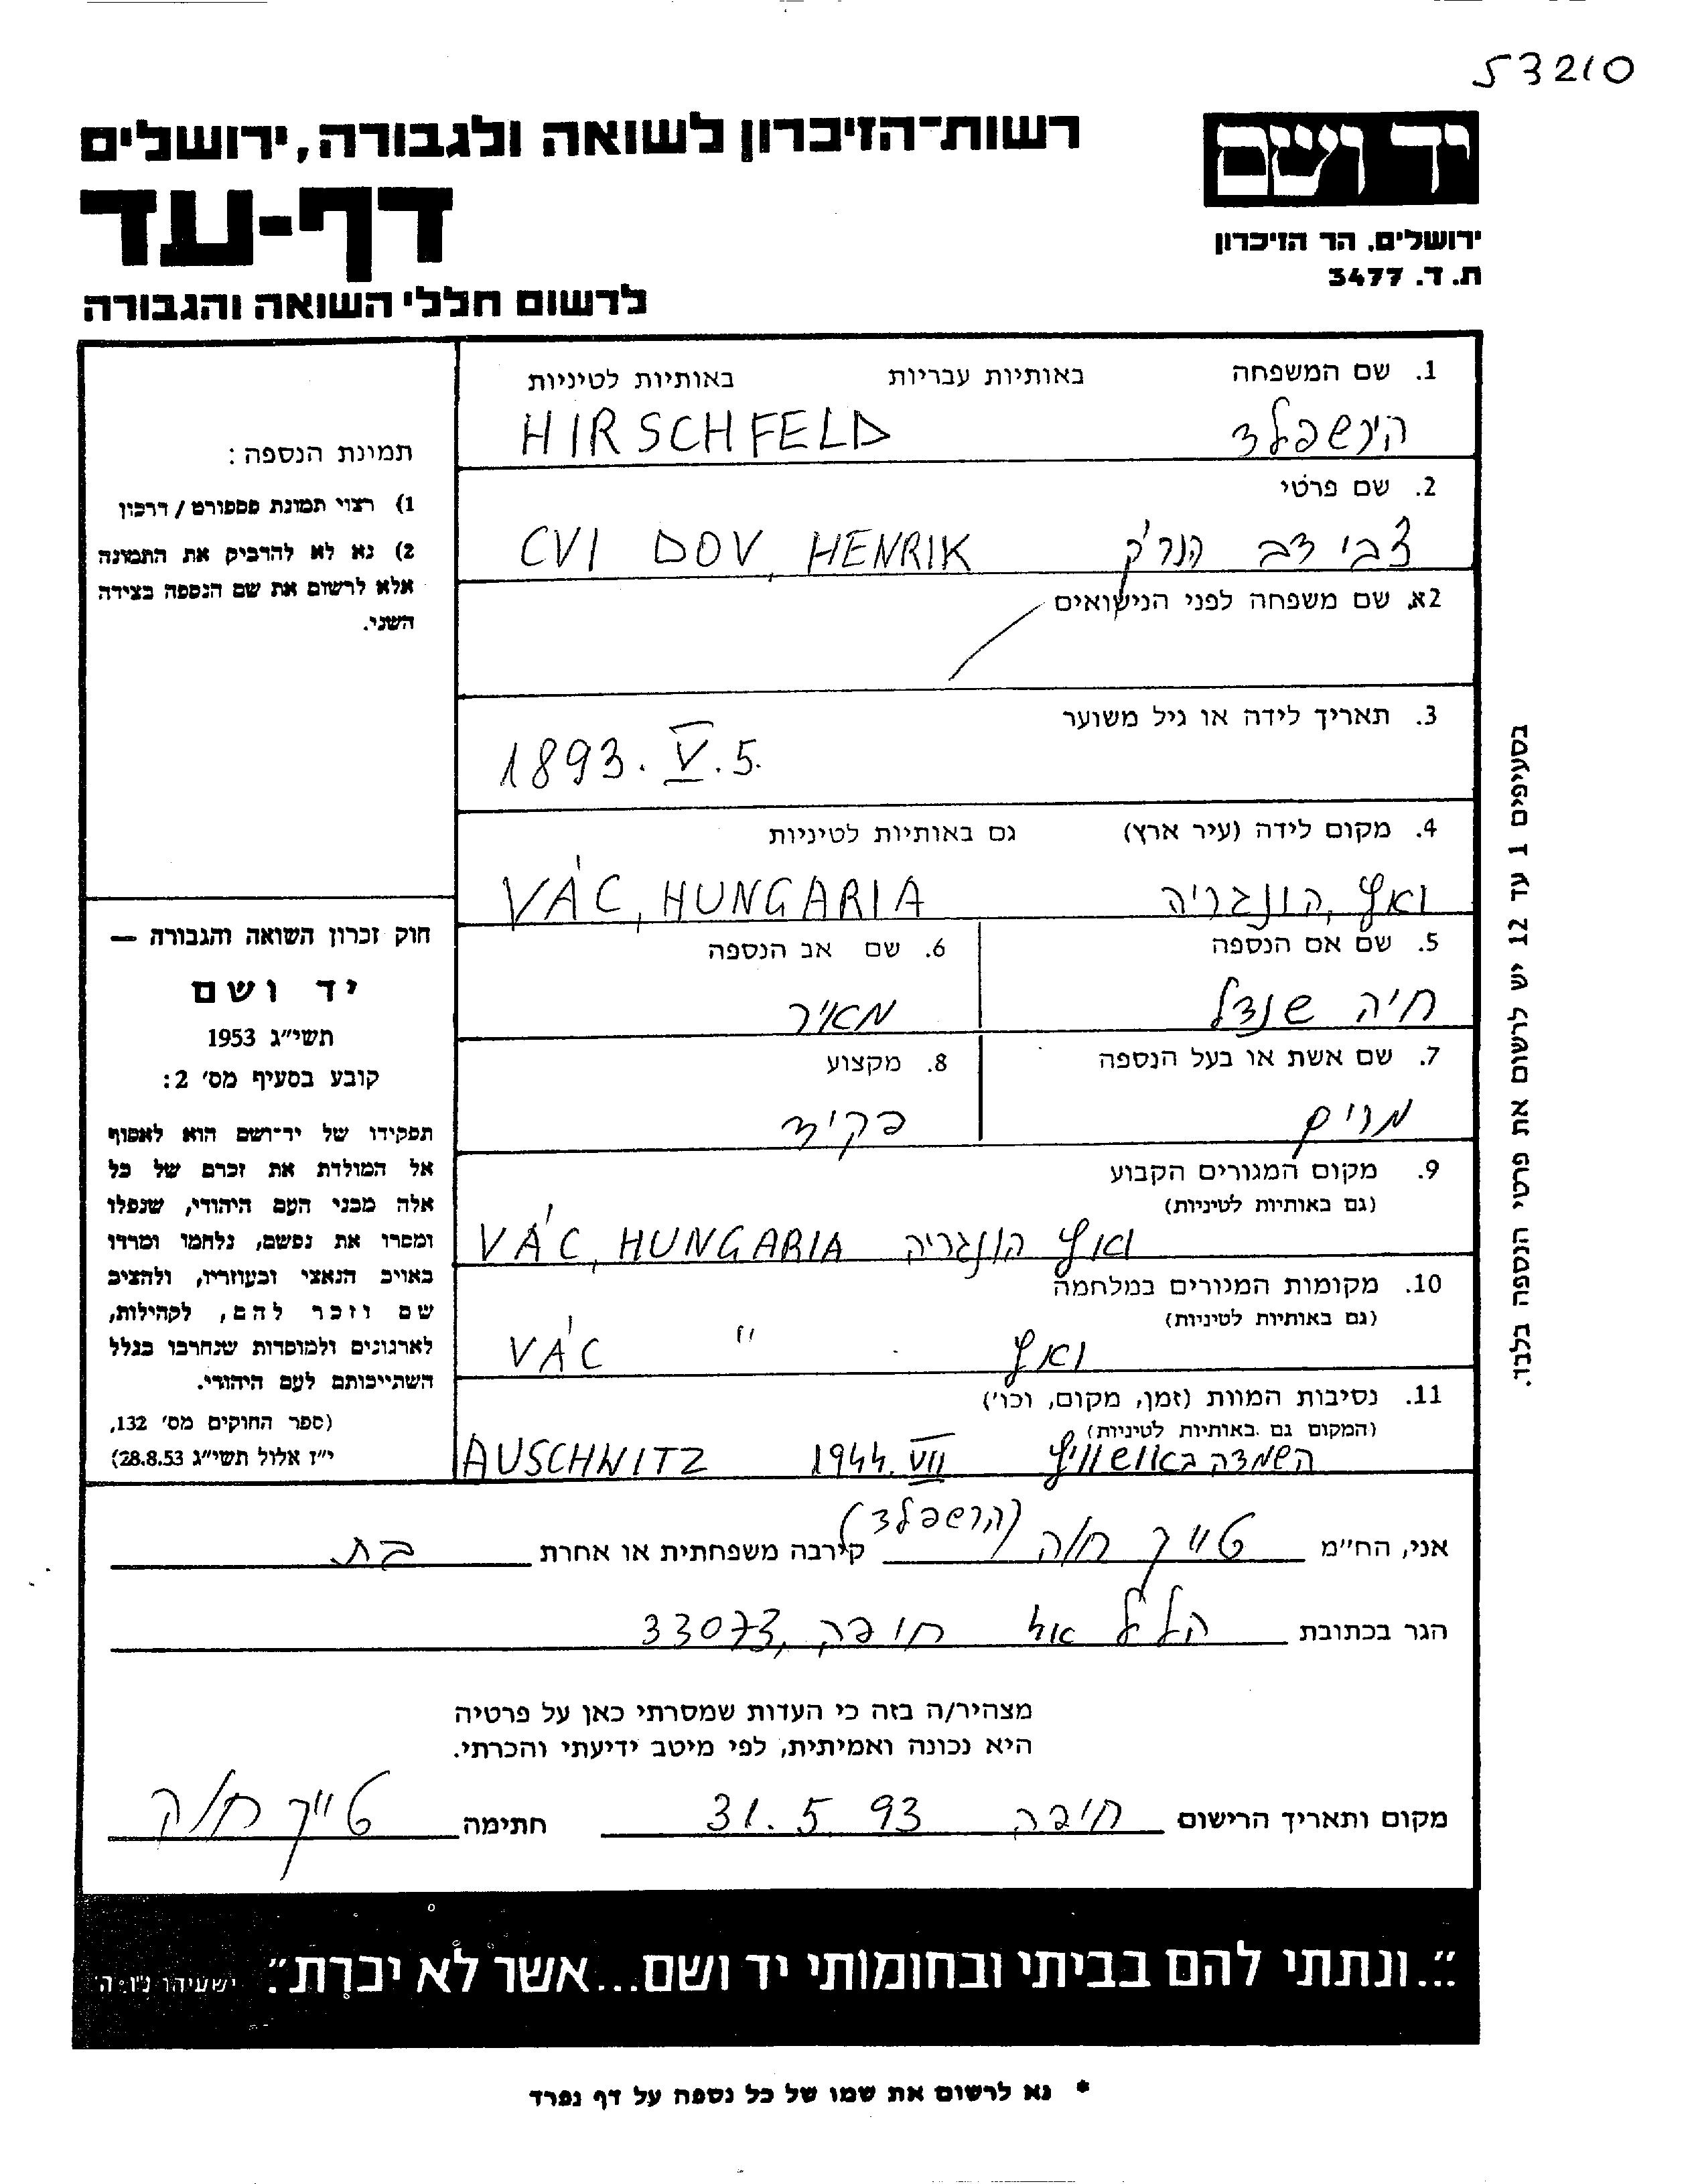 53210
יד ושם
ירושלים. הר הזיכרון
ת.ד. 3477
רשות־הזיכרון לשואה ולגבורה, ירושלים
דף-עד
לרשום חללי השואה והגבורה
1. שם המשפחה באותיות עבריות באותיות לטיניות
הירשפלד HIRSCHFELD
2. שם פרטי
צבי דב הנריק CVI DOV, HENRIK
2א. שם משפחה לפני הנישואים
3. תאריך לידה או גיל משוער
1893. V. 5.
4. מקום לידה (עיר ארץ) גם באותיות לטיניות
ואץ, הונגריה VÁC, HUNGARIA
5. שם אם הנספה 6. שם אב הנספה
חיה שנדל מאיר
7. שם אשת או בעל הנספה 8. מקצוע
מרים פקיד
9. מקום המגורים הקבוע
(גם באותיות לטיניות)
ואץ הונגריה VÁC, HUNGARIA
10. מקומות המגורים במלחמה
(גם באותיות לטיניות)
ואץ " VÁC
11. נסיבות המוות (זמן, מקום, וכו')
(המקום גם באותיות לטיניות)
השמדה באושוויץ 1944. VII AUSCHWITZ
תמונת הנספה:
1) רצוי תמונת פספורט / דרכון
2) נא לא להדביק את התמונה
אלא לרשום את שם הנספה בצידה
השני.
חוק זכרון השואה והגבורה —
יד ושם
תשי"ג 1953
קובע בסעיף מס' 2:
תפקידו של יד־ושם הוא לאסוף
אל המולדת את זכרם של כל
אלה מבני העם היהודי, שנפלו
ומסרו את נפשם, נלחמו ומרדו
באויב הנאצי ובעוזריו, ולהציב
שם וזכר להם, לקהילות,
לארגונים ולמוסדות שנחרבו בגלל
השתייכותם לעם היהודי.
(ספר החוקים מס' 132,
י"ז אלול תשי"ג 28.8.53)
בסעיפים 1 עד 12 יש לרשום את פרטי הנספה בלבד.
אני, הח"מ טייך חוה (הרשפלד) קירבה משפחתית או אחרת בת
הגר בכתובת הלל חיפה, 33073
מצהיר/ה בזה כי העדות שמסרתי כאן על פרטיה
היא נכונה ואמיתית, לפי מיטב ידיעתי והכרתי.
מקום ותאריך הרישום חיפה 31. 5 93 חתימה טייך חוה
"...ונתתי להם בביתי ובחומותי יד ושם...אשר לא יכרת". ישעיהו נ"ו ה'
* נא לרשום את שמו של כל נספה על דף נפרד